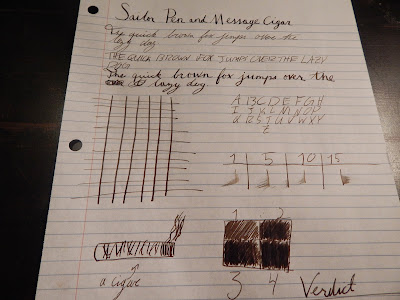 Sailor Pen and Message Cigar
The quick brown fox jumps over the
lazy dog
THE QUICK BROWN FOX JUMPS OVER THE LAZY
DOG
The quick brown fox jumps over the
lazy dog.
A B C D E F G H
I J K L M N O P
Q R S T U V W X Y
Z
1 5 10 15
1 2
a cigar
3 4 Verdict